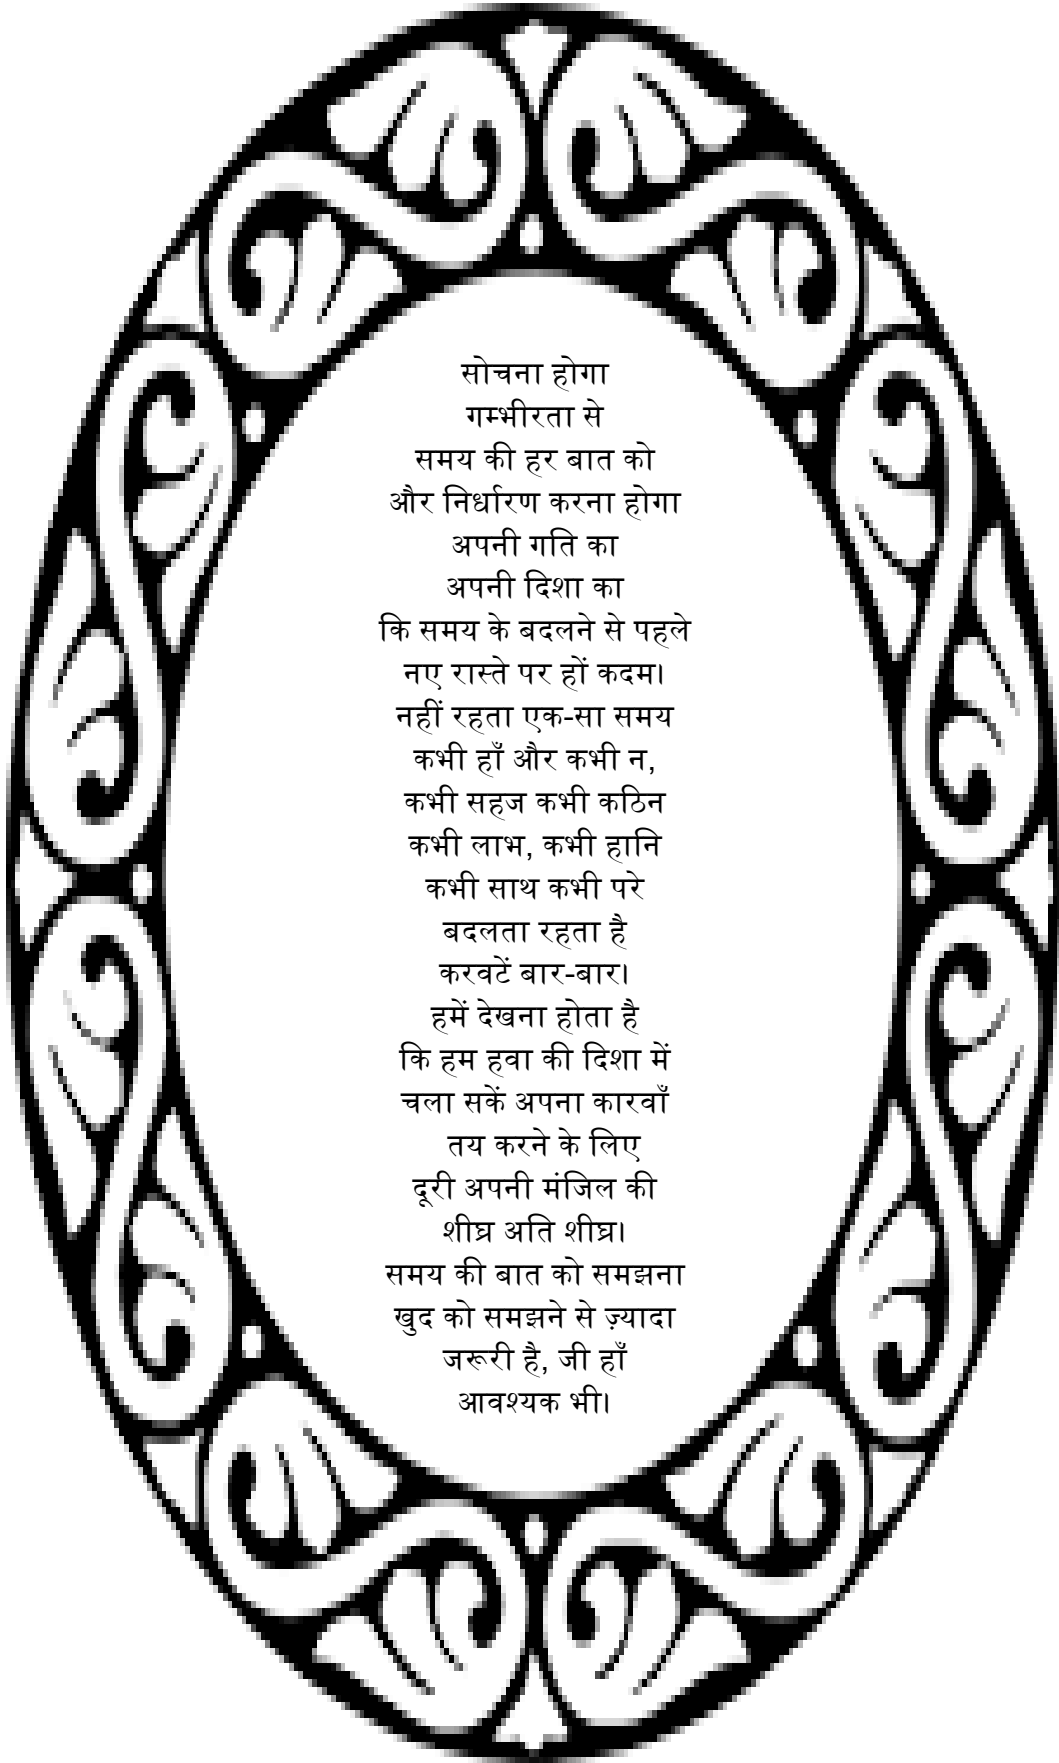 सोचना होगा
गम्भीरता से
समय की हर बात को
और निर्धारण करना होगा
अपनी गति का
अपनी दिशा का
कि समय के बदलने से पहले
नए रास्ते पर हों कदम।
नहीं रहता एक-सा समय
कभी हाँ और कभी न,
कभी सहज कभी कठिन
कभी लाभ, कभी हानि
कभी साथ कभी परे
बदलता रहता है
करवटें बार-बार।
हमें देखना होता है
कि हम हवा की दिशा में
चला सकें अपना कारवाँ
तय करने के लिए
दूरी अपनी मंजिल की
शीघ्र अति शीघ्र।
समय की बात को समझना
खुद को समझने से ज़्यादा
जरूरी है, जी हाँ
आवश्यक भी।